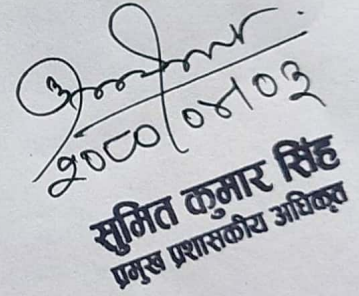 २०८०/०४/०३
सुमित कुमार सिंह
प्रमुख प्रशासकीय अधिकृत